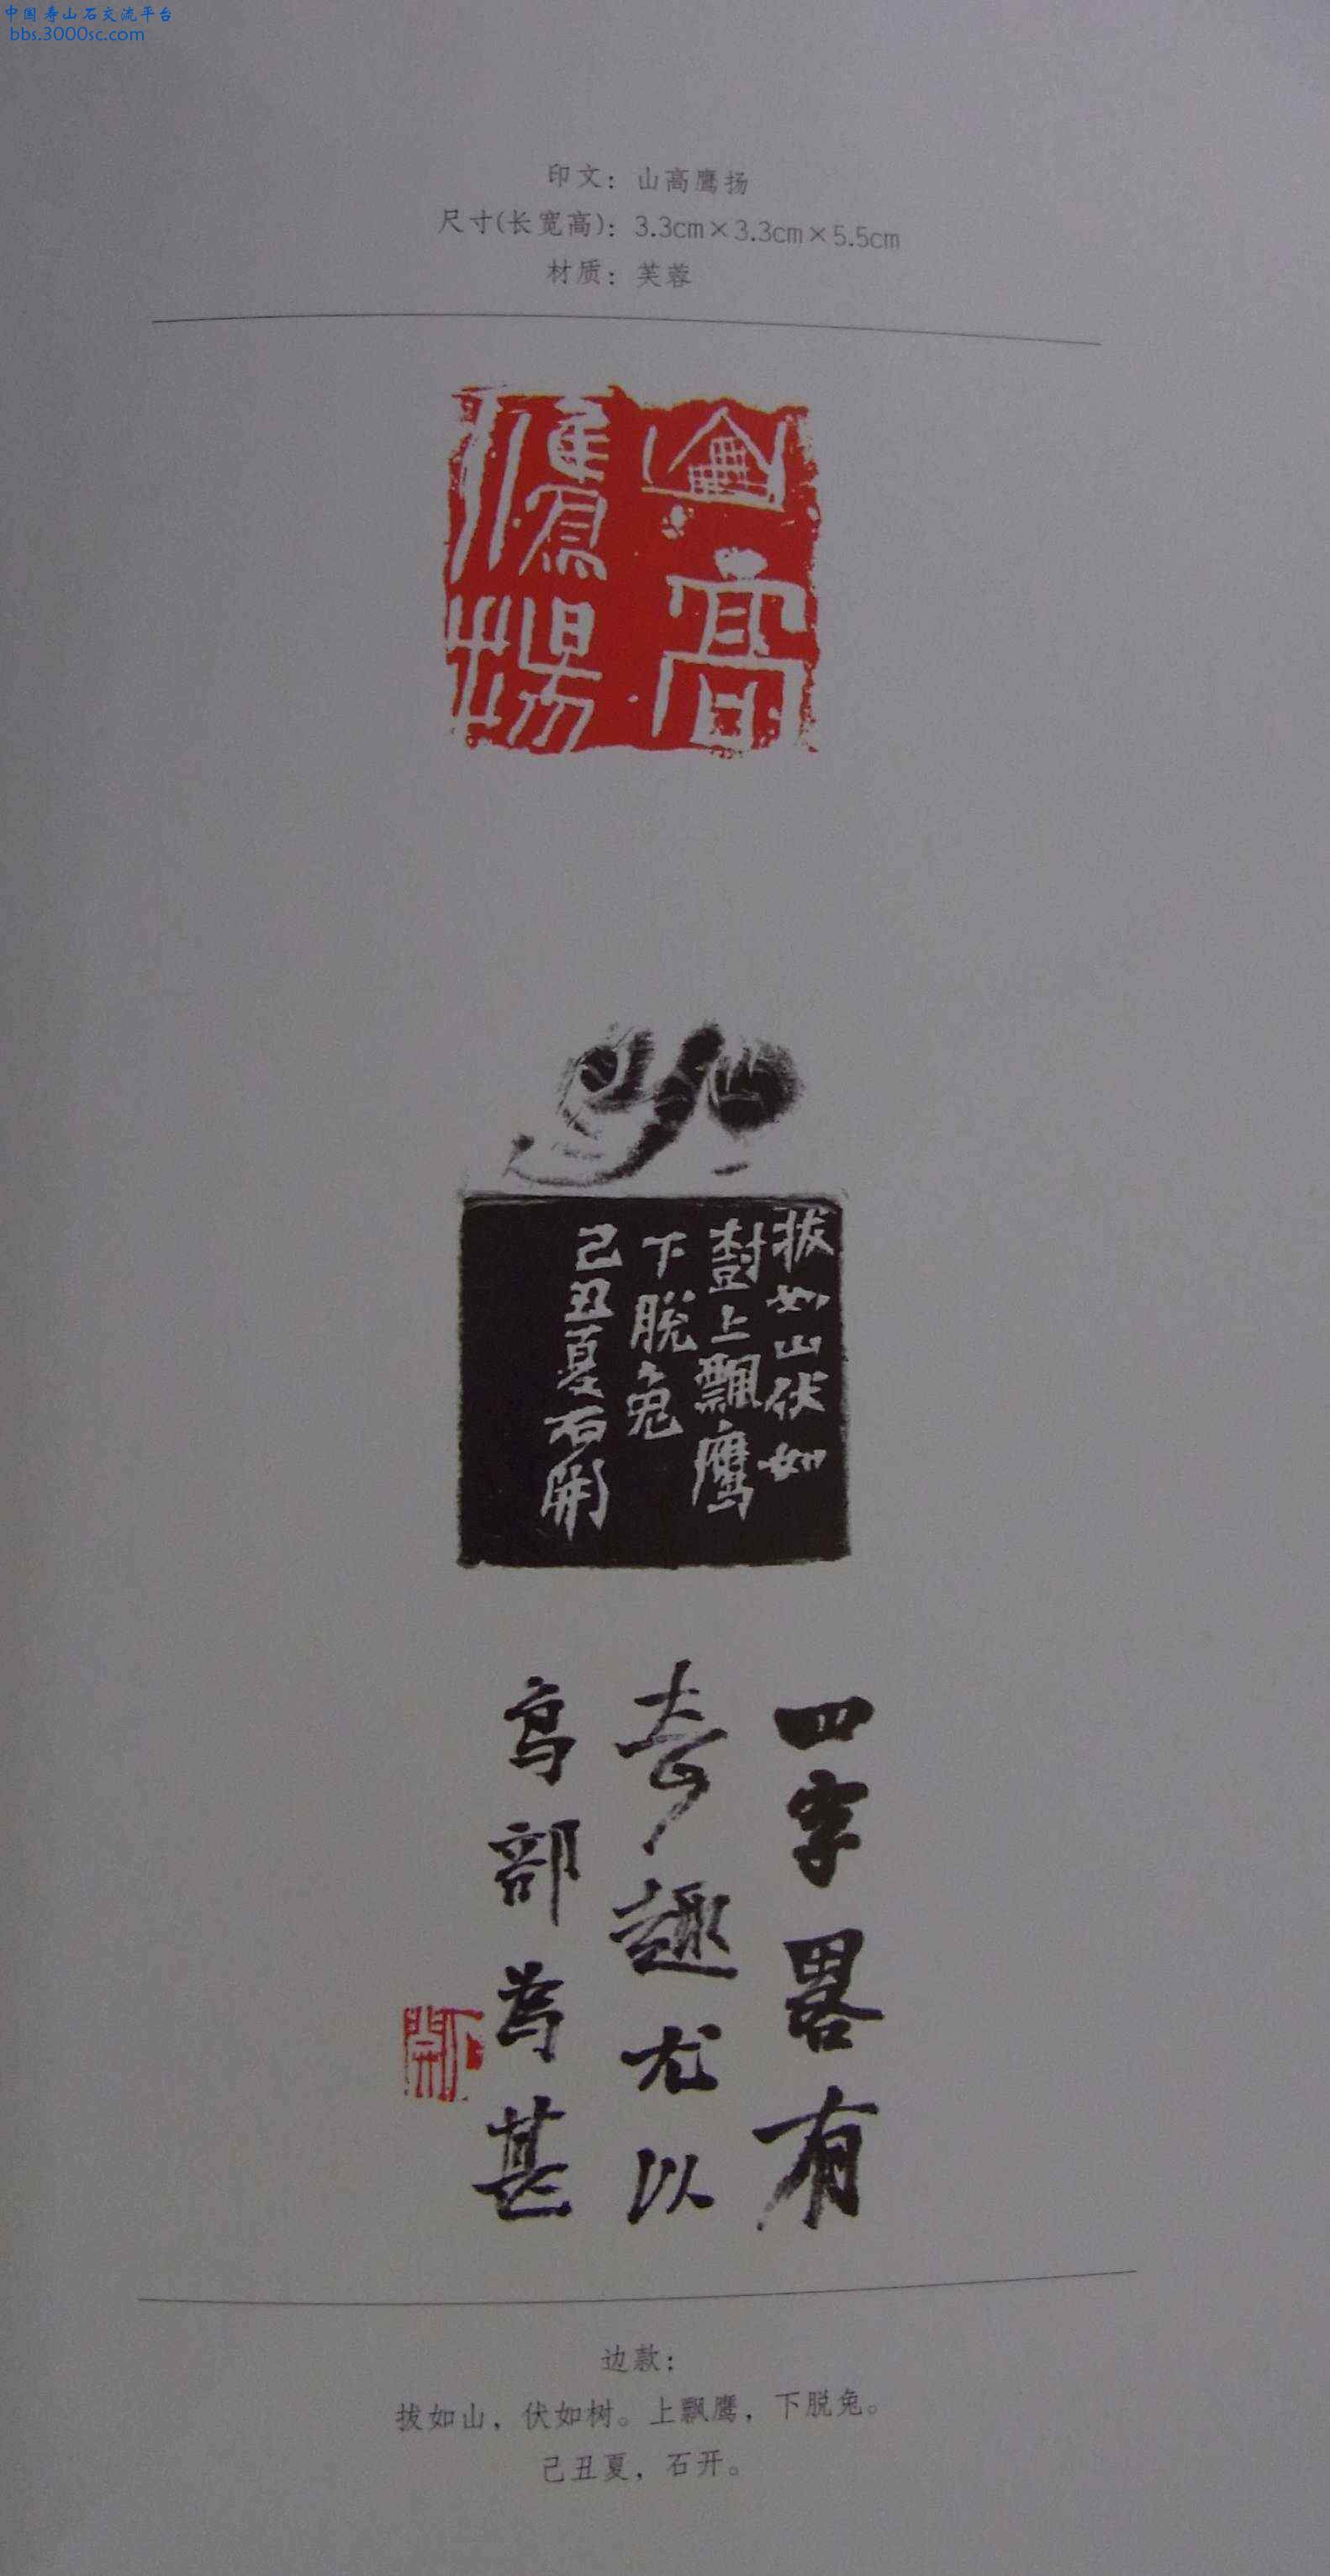 中国寿山石交流平台
bbs.3000sc.com
印文：山高鹰扬
尺寸(长宽高)：3.3cm×3.3cm×5.5cm
材质：芙蓉
山高
鷹揚
拔如山伏如
樹上飄鹰
下脱兔
己丑夏石開
四字畧有
奇趣尤以
高部為甚
石開
边款：
拔如山，伏如树。上飘鹰，下脱兔。
己丑夏，石开。